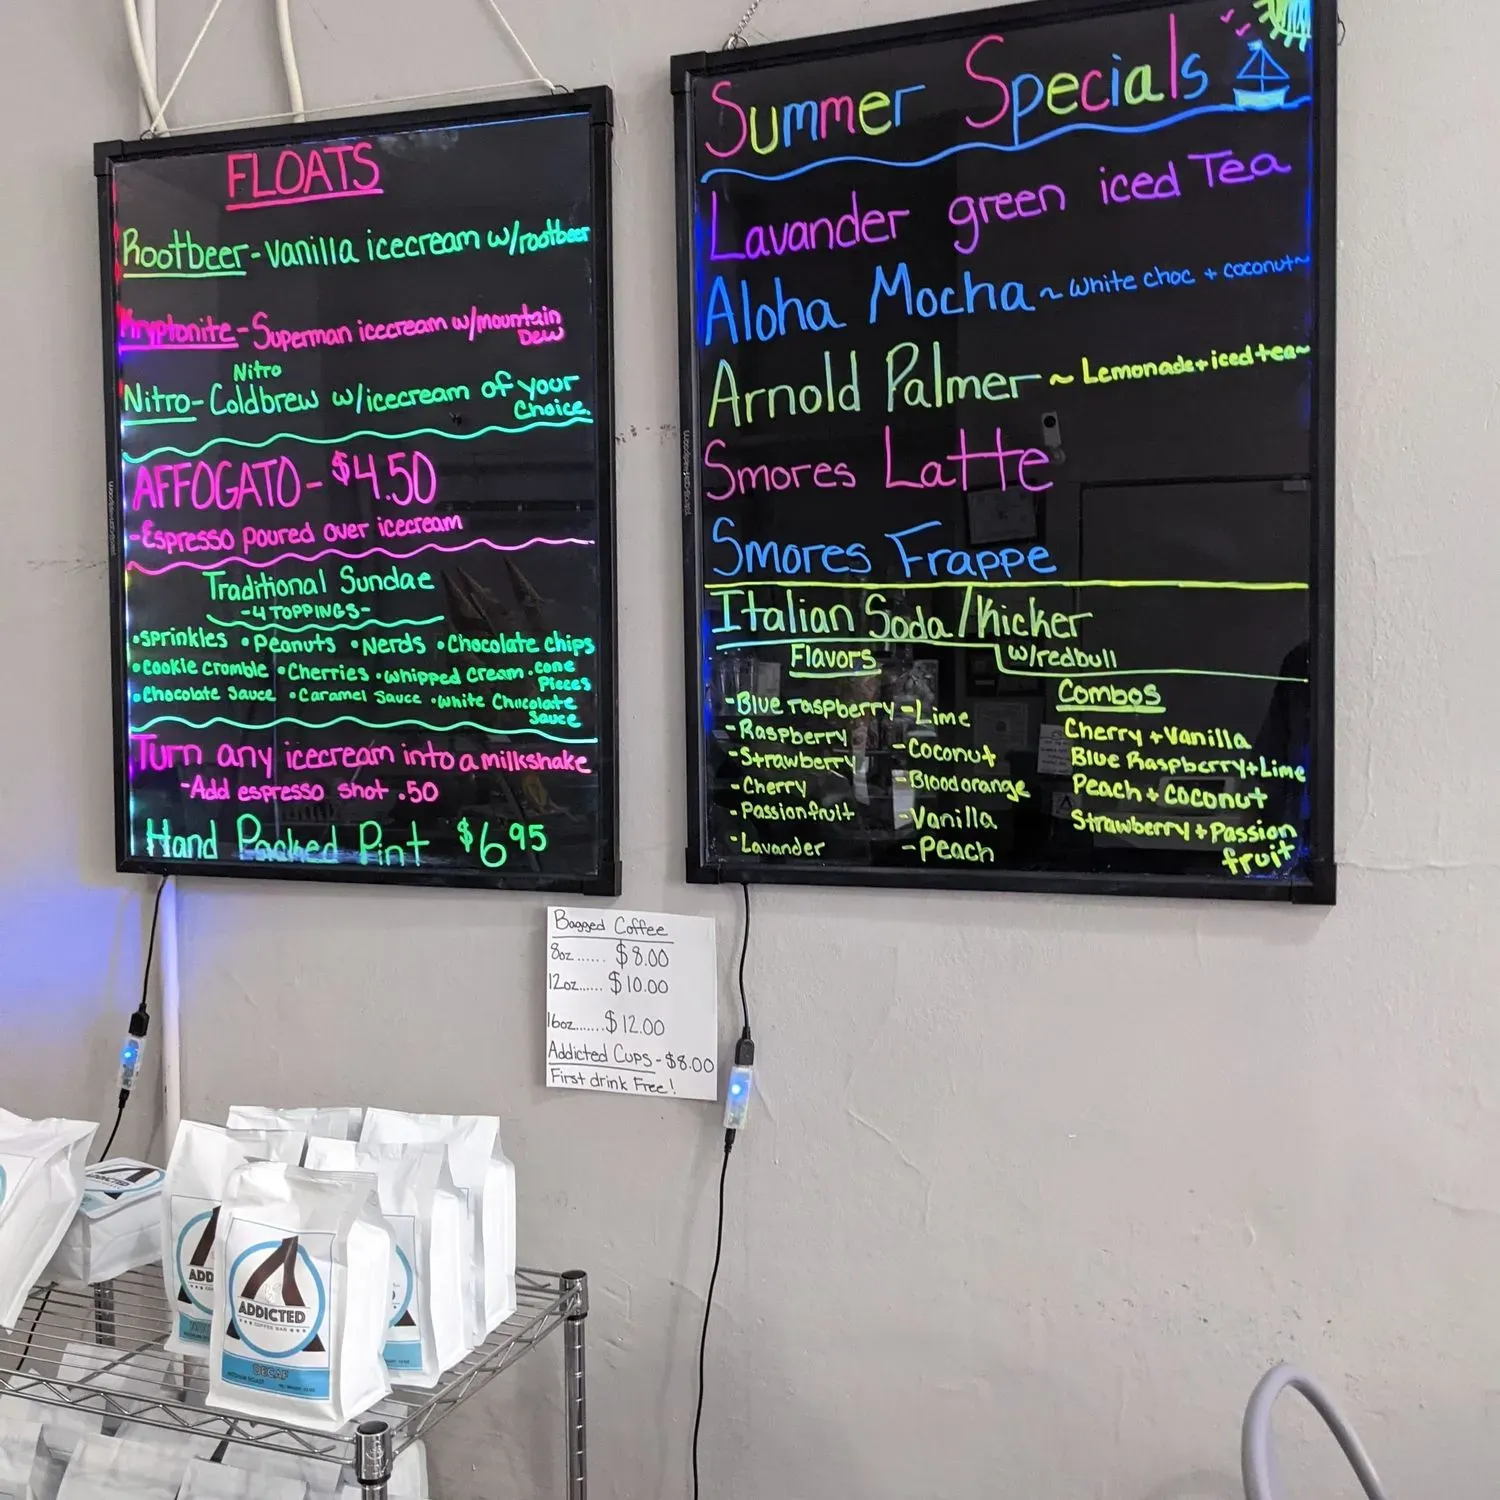 FLOATS
Rootbeer - vanilla icecream w/rootbeer
Kryptonite - Superman icecream w/mountain
Dew
Nitro
Nitro - Coldbrew w/icecream of your
Choice.
AFFOGATO - $4.50
- Espresso poured over icecream
Traditional Sundae
- 4 TOPPINGS -
• sprinkles • Peanuts • Nerds • Chocolate chips
• cookie crumble • Cherries • whipped cream • cone
Pieces
• Chocolate sauce • Caramel Sauce • White Chocolate
Sauce
Turn any icecream into a milkshake
- Add espresso shot .50
Hand Packed Pint $6.95
Summer Specials
Lavander green iced Tea
Aloha Mocha ~ white choc + coconut ~
Arnold Palmer ~ Lemonade + iced tea ~
Smores Latte
Smores Frappe
Italian Soda / Kicker
w/redbull
Flavors
- Blue raspberry
- Raspberry
- Strawberry
- Cherry
- Passionfruit
- Lavander
- Lime
- Coconut
- Bloodorange
- Vanilla
- Peach
Combos
Cherry + Vanilla
Blue Raspberry + Lime
Peach + Coconut
Strawberry + Passion
fruit
Bagged Coffee
8oz...... $8.00
12oz...... $10.00
16oz....... $12.00
Addicted Cups - $8.00
First drink Free!
ADDICTED
ADDICTED
COFFEE BAR
DECAF
MEDIUM ROAST